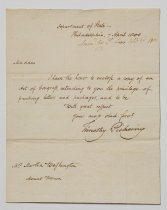 Department of State
Philadelphia 7 April 1800
Madam
I have the honor to enclose a copy of an
Act of Congress extending to you the privilege of
franking letters and packages, and to be
With great respect
your most obed. servt.
Timothy Pickering
Mrs. Martha Washington
Mount Vernon